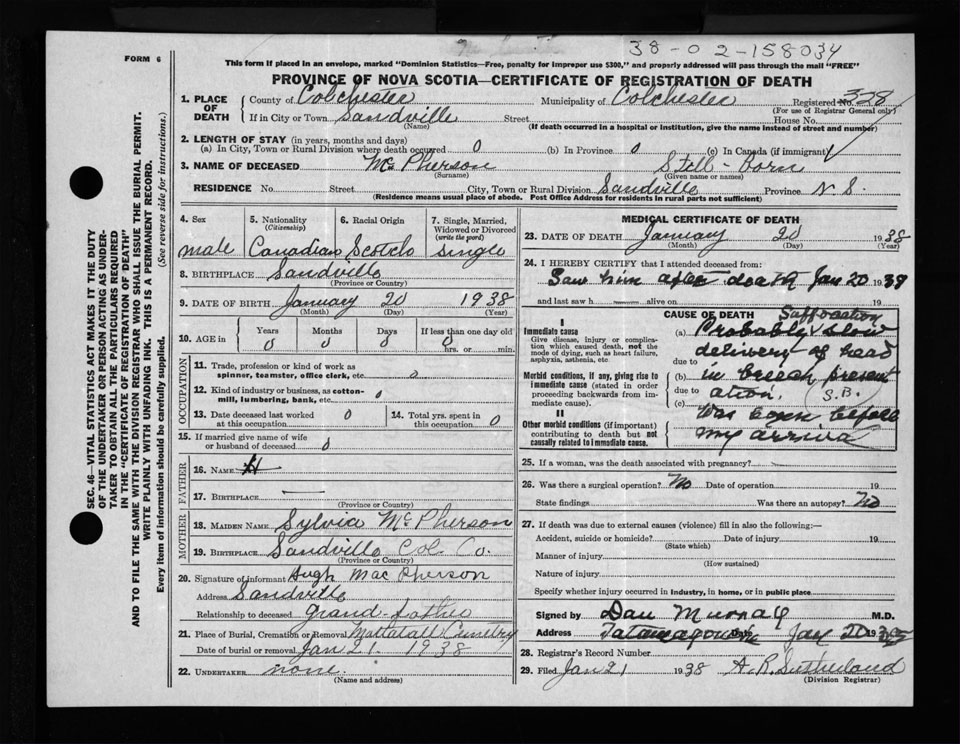 38-02-158034
FORM 6
This form if placed in an envelope, marked "Dominion Statistics—Free, penalty for improper use $300," and properly addressed will pass through the mail "FREE"
PROVINCE OF NOVA SCOTIA—CERTIFICATE OF REGISTRATION OF DEATH
1. PLACE OF DEATH County of Colchester Municipality of Colchester Registered No. 328
(For use of Registrar General only)
If in City or Town Sandville Street House No.
(Name) (If death occurred in a hospital or institution, give the name instead of street and number)
2. LENGTH OF STAY (in years, months and days)
(a) In City, Town or Rural Division where death occurred 0 (b) In Province 0 (c) In Canada (if immigrant)
3. NAME OF DECEASED McPherson Still-Born
(Surname) (Given name or names)
RESIDENCE No. Street City, Town or Rural Division Sandville Province N S.
(Residence means usual place of abode. Post Office Address for residents in rural parts not sufficient)
4. Sex 5. Nationality (Citizenship) 6. Racial Origin 7. Single, Married, Widowed or Divorced (write the word)
male Canadian Scotch single
8. BIRTHPLACE Sandville
(Province or County)
9. DATE OF BIRTH January 20 1938
(Month) (Day) (Year)
10. AGE in Years Months Days If less than one day old
0 0 0 0 hrs. or min.
OCCUPATION
11. Trade, profession or kind of work as spinner, teamster, office clerk, etc. 0
12. Kind of industry or business, as cotton-mill, lumbering, bank, etc. 0
13. Date deceased last worked at this occupation 0 14. Total yrs. spent in this occupation 0
15. If married give name of wife or husband of deceased 0
FATHER
16. NAME H
17. BIRTHPLACE —
(Province or County)
MOTHER
18. MAIDEN NAME Sylvia McPherson
19. BIRTHPLACE Sandville Col. Co.
(Province or County)
20. Signature of informant Hugh MacPherson
Address Sandville
Relationship to deceased Grand-father
21. Place of Burial, Cremation or Removal Mattatall Cemetry
Date of burial or removal Jan 21. 1938
22. UNDERTAKER none.
(Name and address)
MEDICAL CERTIFICATE OF DEATH
23. DATE OF DEATH January 20 1938
(Month) (Day) (Year)
24. I HEREBY CERTIFY that I attended deceased from:
Saw him after death Jan 20 1938
and last saw h alive on 19
CAUSE OF DEATH Suffocation
I
Immediate cause
Give disease, injury or complication which caused death, not the mode of dying, such as heart failure, asphyxia, asthenia, etc.
(a) Probably slow
delivery of head
due to
Morbid conditions, if any, giving rise to immediate cause (stated in order proceeding backwards from immediate cause).
(b) in breech present
due to ation. S.B.
(c)
II
Other morbid conditions (if important) contributing to death but not causally related to immediate cause.
Was born before
my arrival
25. If a woman, was the death associated with pregnancy?
26. Was there a surgical operation? No Date of operation 19
State findings Was there an autopsy? No
27. If death was due to external causes (violence) fill in also the following:—
Accident, suicide or homicide? Date of injury 19
(State which)
Manner of injury
(How sustained)
Nature of injury
Specify whether injury occurred in industry, in home, or in public place
Signed by Dan Murray M.D.
Address Tatamagouche Jan 20 19
28. Registrar's Record Number
29. Filed Jan 21 1938 A. R. Sutherland
(Division Registrar)
SEC. 46—VITAL STATISTICS ACT MAKES IT THE DUTY
OF THE UNDERTAKER OR PERSON ACTING AS UNDER-
TAKER TO OBTAIN ALL THE PARTICULARS REQUIRED
IN THE "CERTIFICATE OF REGISTRATION OF DEATH"
AND TO FILE THE SAME WITH THE DIVISION REGISTRAR WHO SHALL ISSUE THE BURIAL PERMIT.
WRITE PLAINLY WITH UNFADING INK. THIS IS A PERMANENT RECORD.
Every item of information should be carefully supplied. (See reverse side for instructions.)